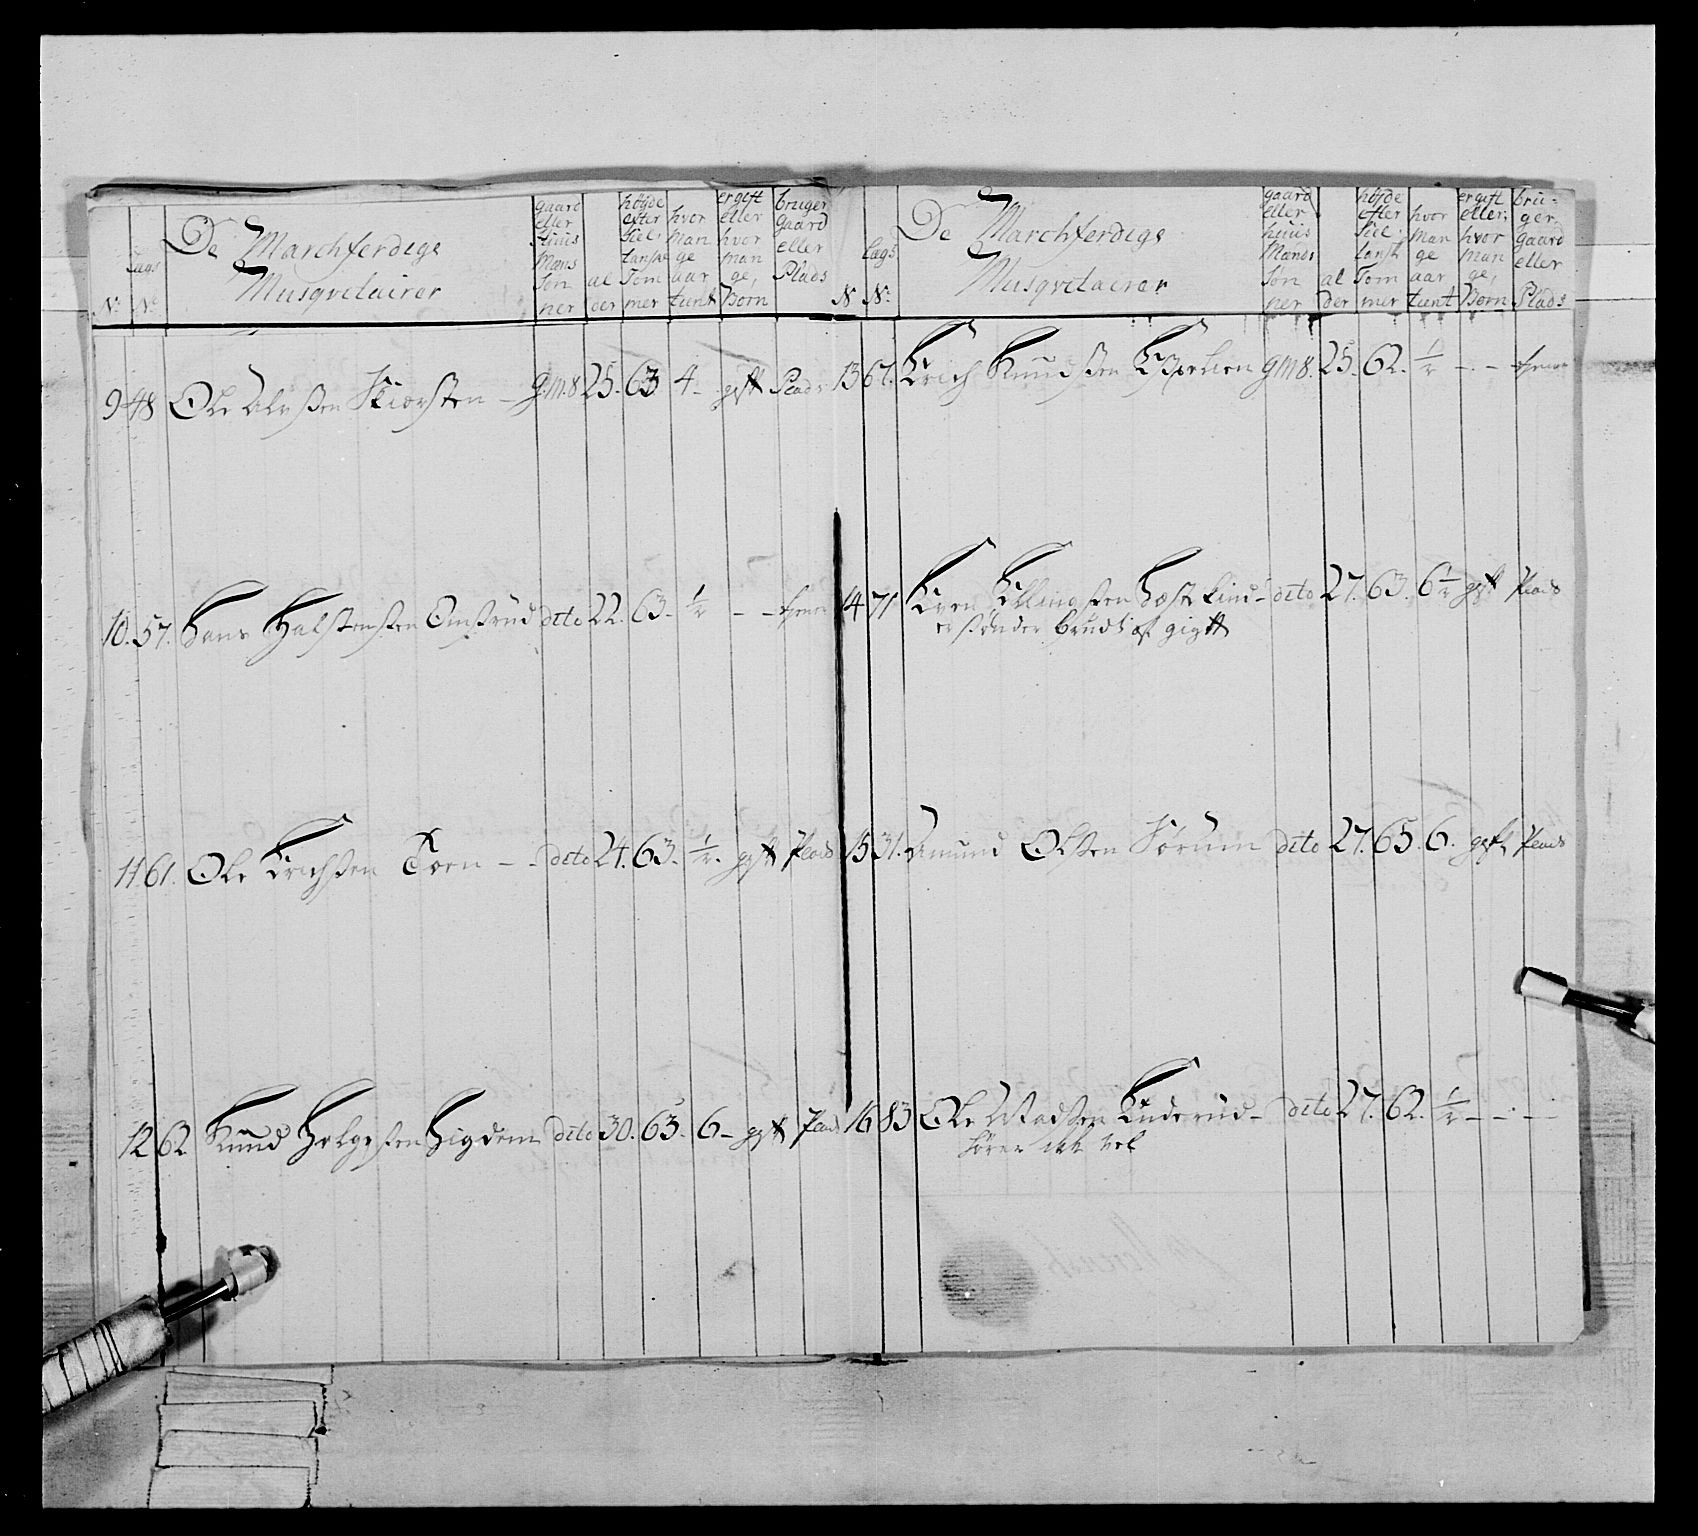 N:
Lægs
N:
De Marchferdige
Musqvetairer
gaard
eller
Huus
Mæns
Søn
ner
al
der
höyde
efter
Siel.
lanske
Tom
mer
hvor
man
ge
aar
tient
er gift
eller
hvor
man
ge,
Börn
bruger
gaard
eller
Plads
9 48 Ole Skiørsten - g.m.8 25. 63 4- gift Plads
10. 57. Hans Halstensen dito 22. 63. ½ - - tiener
11 61. Ole Erichsen Toen - - dito 24. 63. ½. gift Plads
12 62 Knud Helgesen Higdem dito 30. 63. 6- gift Plads
N
Lægs
N:
De Marchferdige
Musqvetairer
gaard
eller
huus
Mænds
Søn
ner
al
der
höyde
efter
Siel.
lansk
Tom
mer
hvor
man
ge
aar
tient
er gift
eller,
hvor
man
ge,
Börn
bru-
ger
gaard
eller
Plads
13 67. Erich Knudsen gm8. 25. 62. ½ - - tiener
14 71 Even Ellingsen dito 27. 63. 6½ gift Plads
er
15 31. Amund Olsen Sørum dito 27. 65. 6. gift Plads
16 83 Ole Madsen Ruderud - dito 27. 62. ½ - - -
hører ikke vel